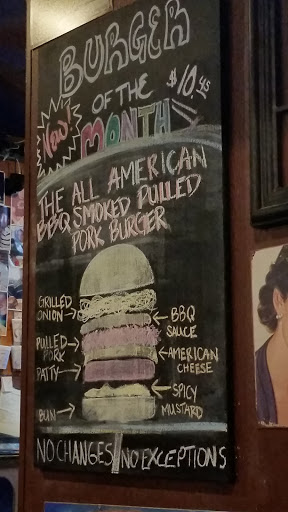 BURGER
OF THE
MONTH
$10.45
New!
THE ALL AMERICAN
BBQ SMOKED PULLED
PORK BURGER
GRILLED
ONION
BBQ
SAUCE
PULLED
PORK
AMERICAN
CHEESE
PATTY
SPICY
MUSTARD
BUN
NO CHANGES NO EXCEPTIONS